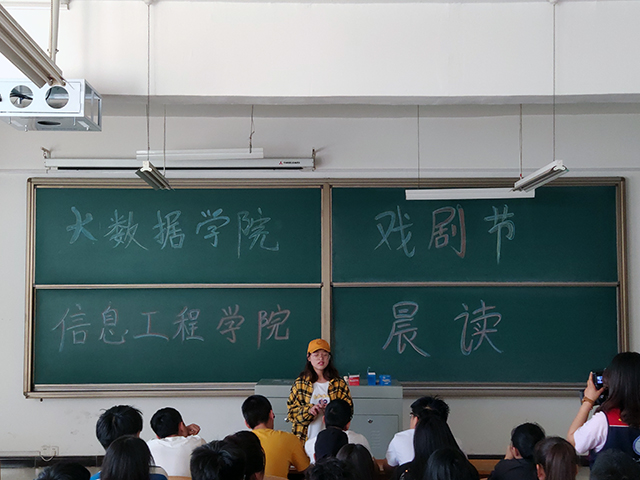 大数据学院
戏剧节
信息工程学院
晨读